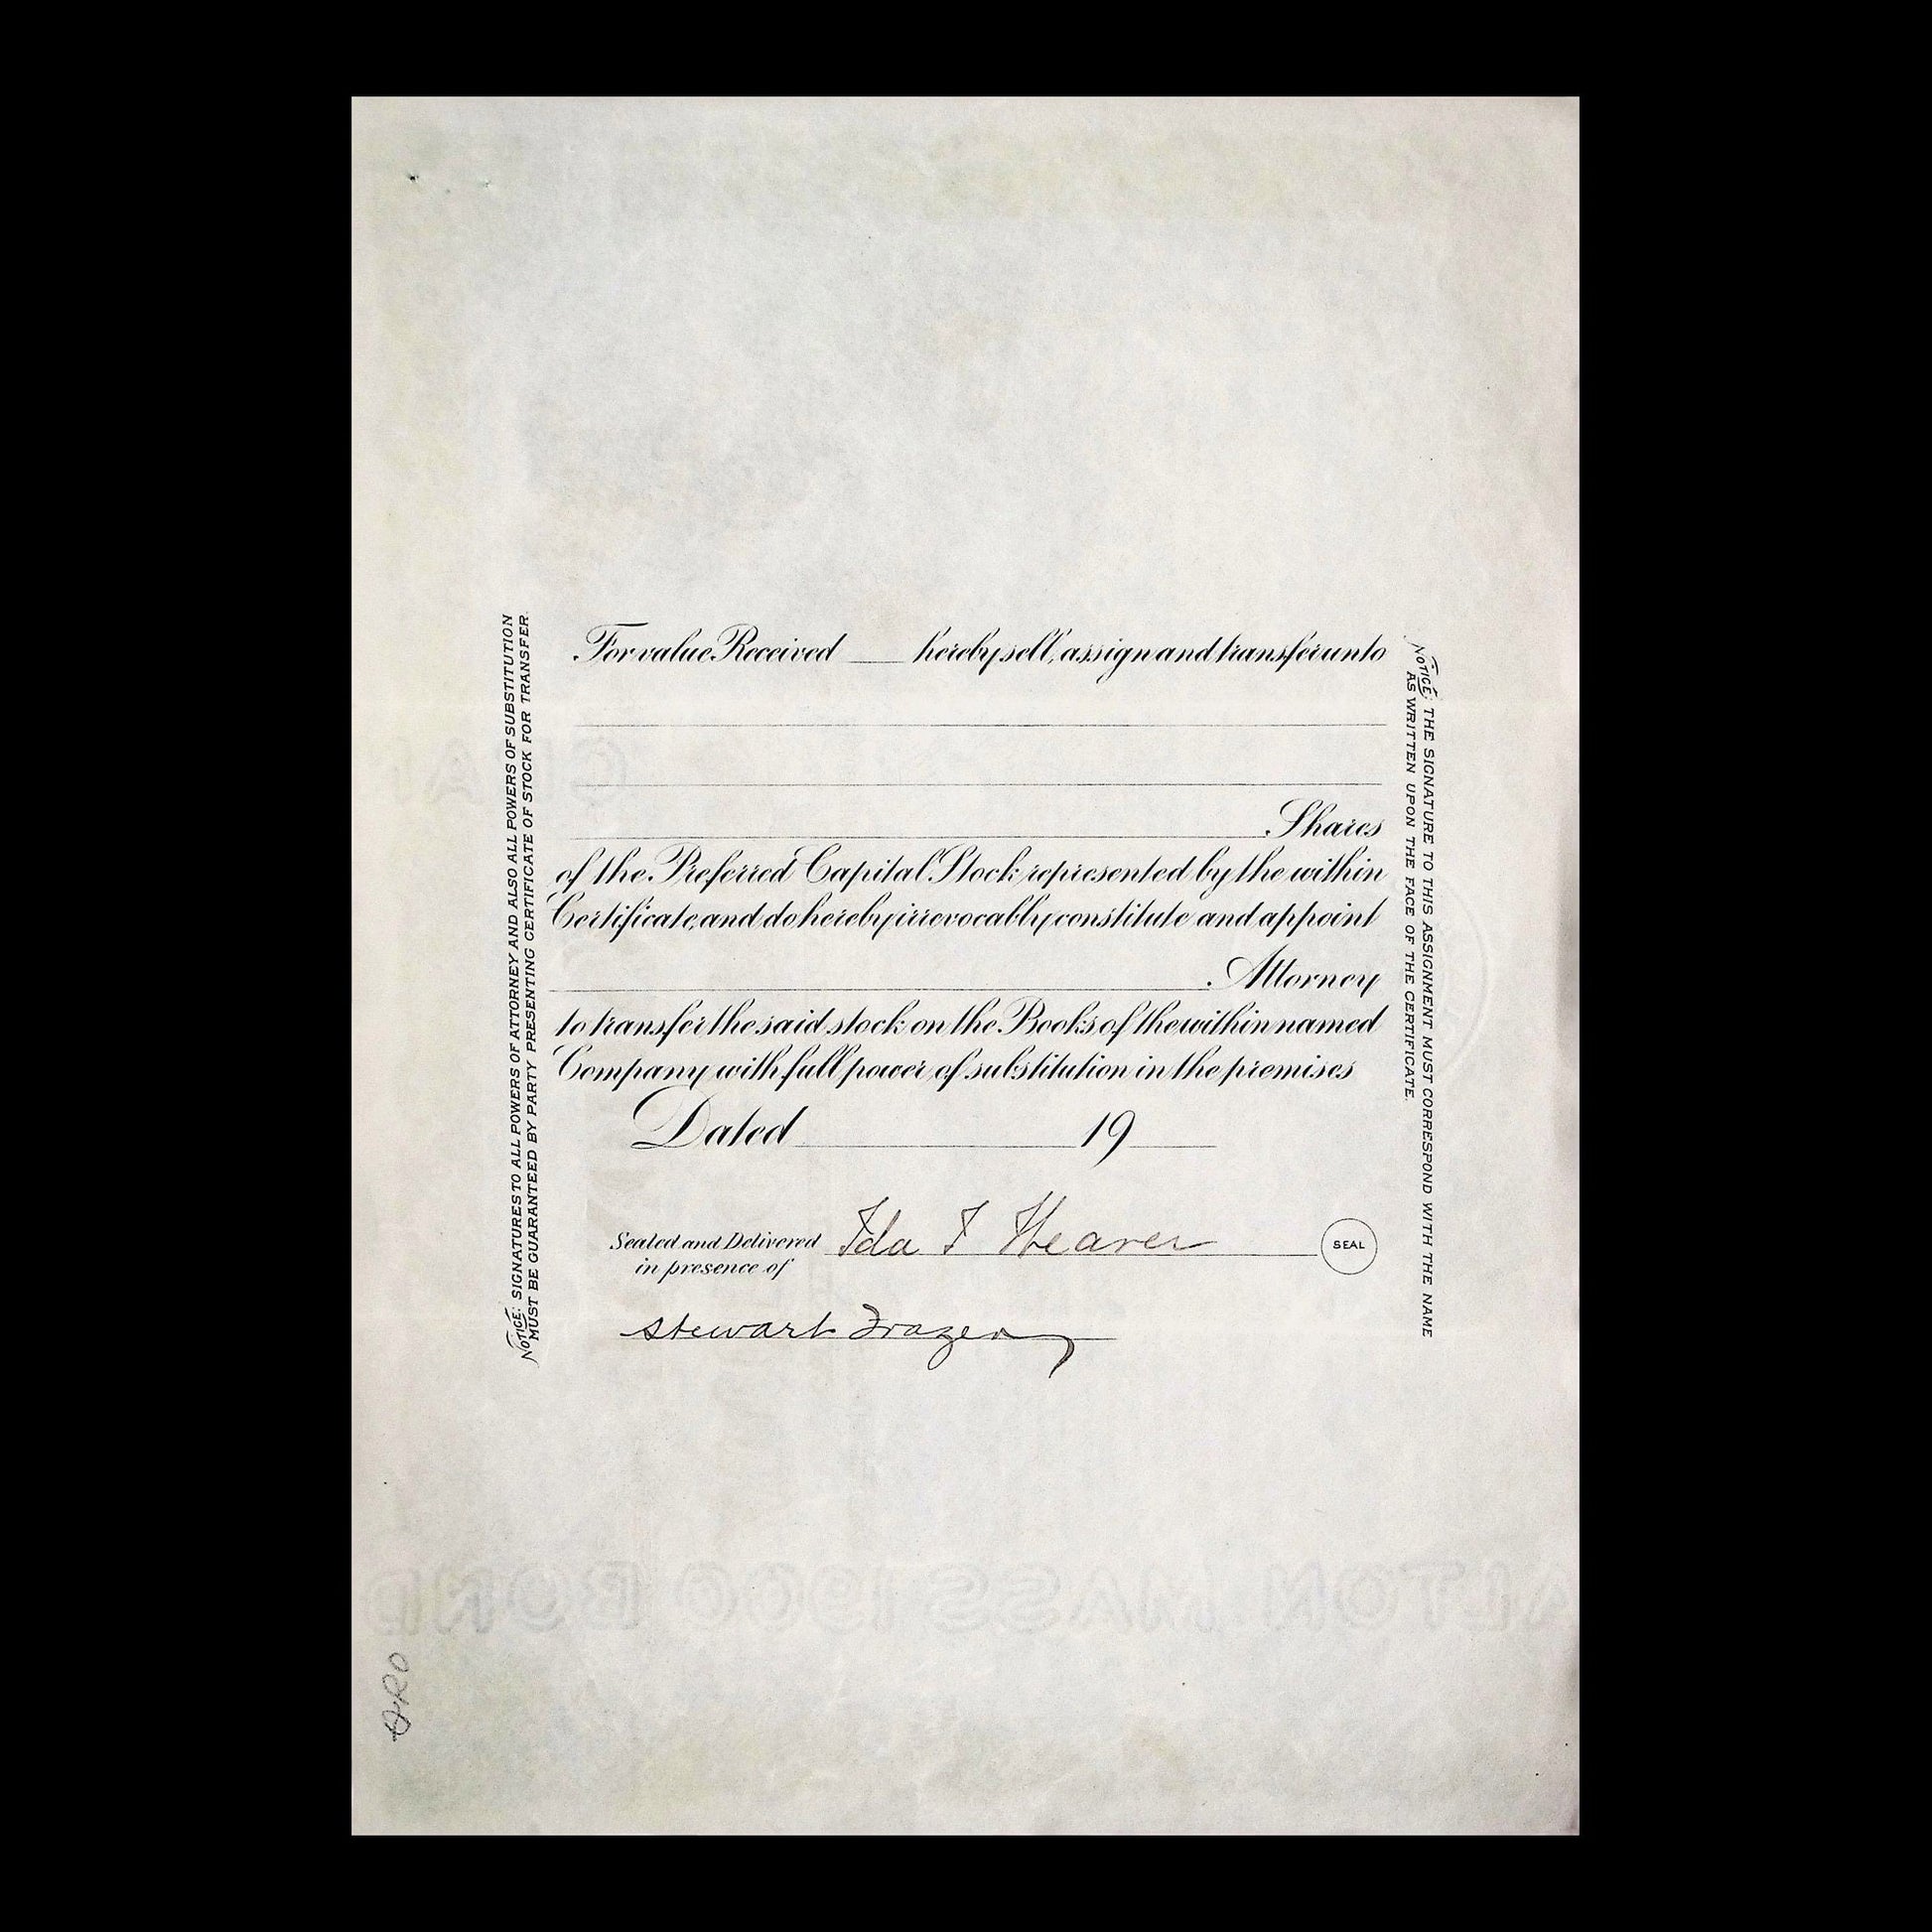 For value Received ____ hereby sell, assign and transfer unto
Shares
of the Preferred Capital Stock represented by the within
Certificate, and do hereby irrevocably constitute and appoint
Attorney
to transfer the said stock on the Books of the within named
Company with full power of substitution in the premises
Dated 19
Sealed and Delivered Ida F Heaver SEAL
in presence of
Stewart
NOTICE: SIGNATURES TO ALL POWERS OF ATTORNEY AND ALSO ALL POWERS OF SUBSTITUTION
MUST BE GUARANTEED BY PARTY PRESENTING CERTIFICATE OF STOCK FOR TRANSFER.
NOTICE: THE SIGNATURE TO THIS ASSIGNMENT MUST CORRESPOND WITH THE NAME
AS WRITTEN UPON THE FACE OF THE CERTIFICATE.
ALTON MASS 1900 BOND